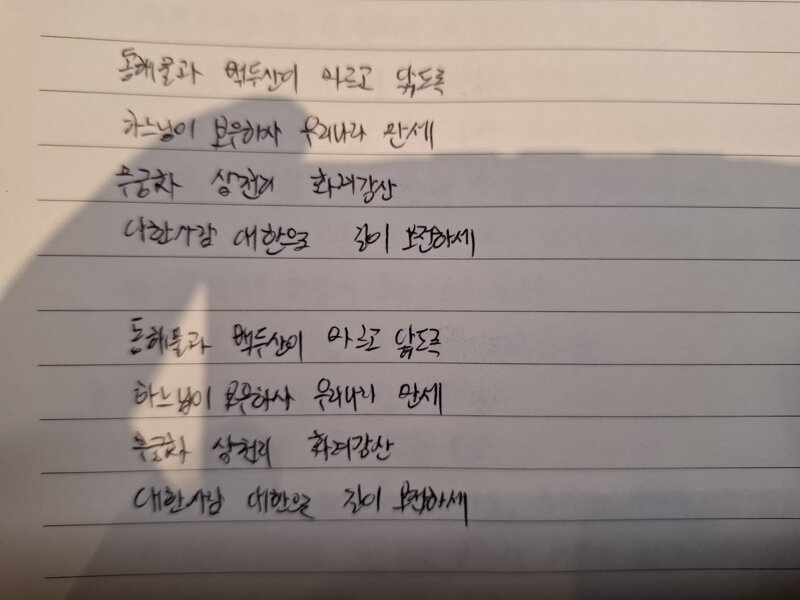 동해물과 백두산이 마르고 닳도록
하느님이 보우하사 우리나라 만세
무궁화 삼천리 화려강산
대한사람 대한으로 길이 보전하세
동해물과 백두산이 마르고 닳도록
하느님이 보우하사 우리나라 만세
무궁화 삼천리 화려강산
대한사람 대한으로 길이 보전하세